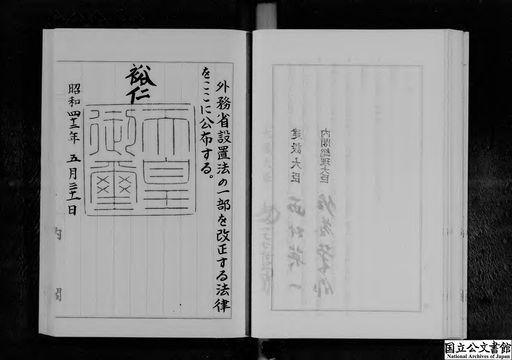 外務省設置法の一部を改正する法律
をここに公布する。
裕仁
天皇
御璽
昭和四十三年五月三十一日
内閣
内閣総理大臣
建設大臣
西村英一
国立公文書館
National Archives of Japan